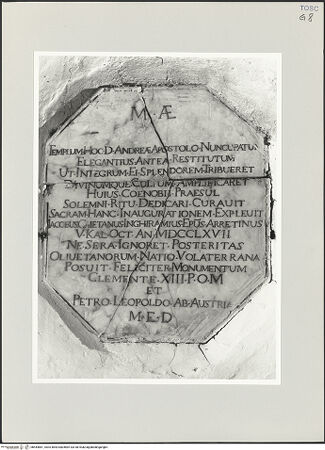 TOSC
G8
M Æ
TEMPLUM·HOC·D·ANDREÆ·APOSTOLO·NUNCUPATU
ELEGANTIUS·ANTEA·RESTITUTUM
UT·INTEGRUM·EI·SPLENDOREM·TRIBUERET
DIVINUMQUE·CULTUM·AMPLIFICARET
HUIUS·COENOBII·PRAESUL
SOLEMNI·RITU·DEDICARI·CURAUIT
SACRAM·HANC·INAUGURATIONEM·EXPLEUIT
IACOBUS·GAETANUS·INGHIRAMIUS·EPUS·ARRETINUS
V·KAL·OCT·AN·MDCCLXVII
NE·SERA·IGNORET·POSTERITAS
OLIUETANORUM·NATIO·VOLATERRANA
POSUIT·FELICITER·MONUMENTUM
CLEMENTE·XIII·P·O·M
ET
PETRO·LEOPOLDO·AB·AUSTRIA
M·E·D